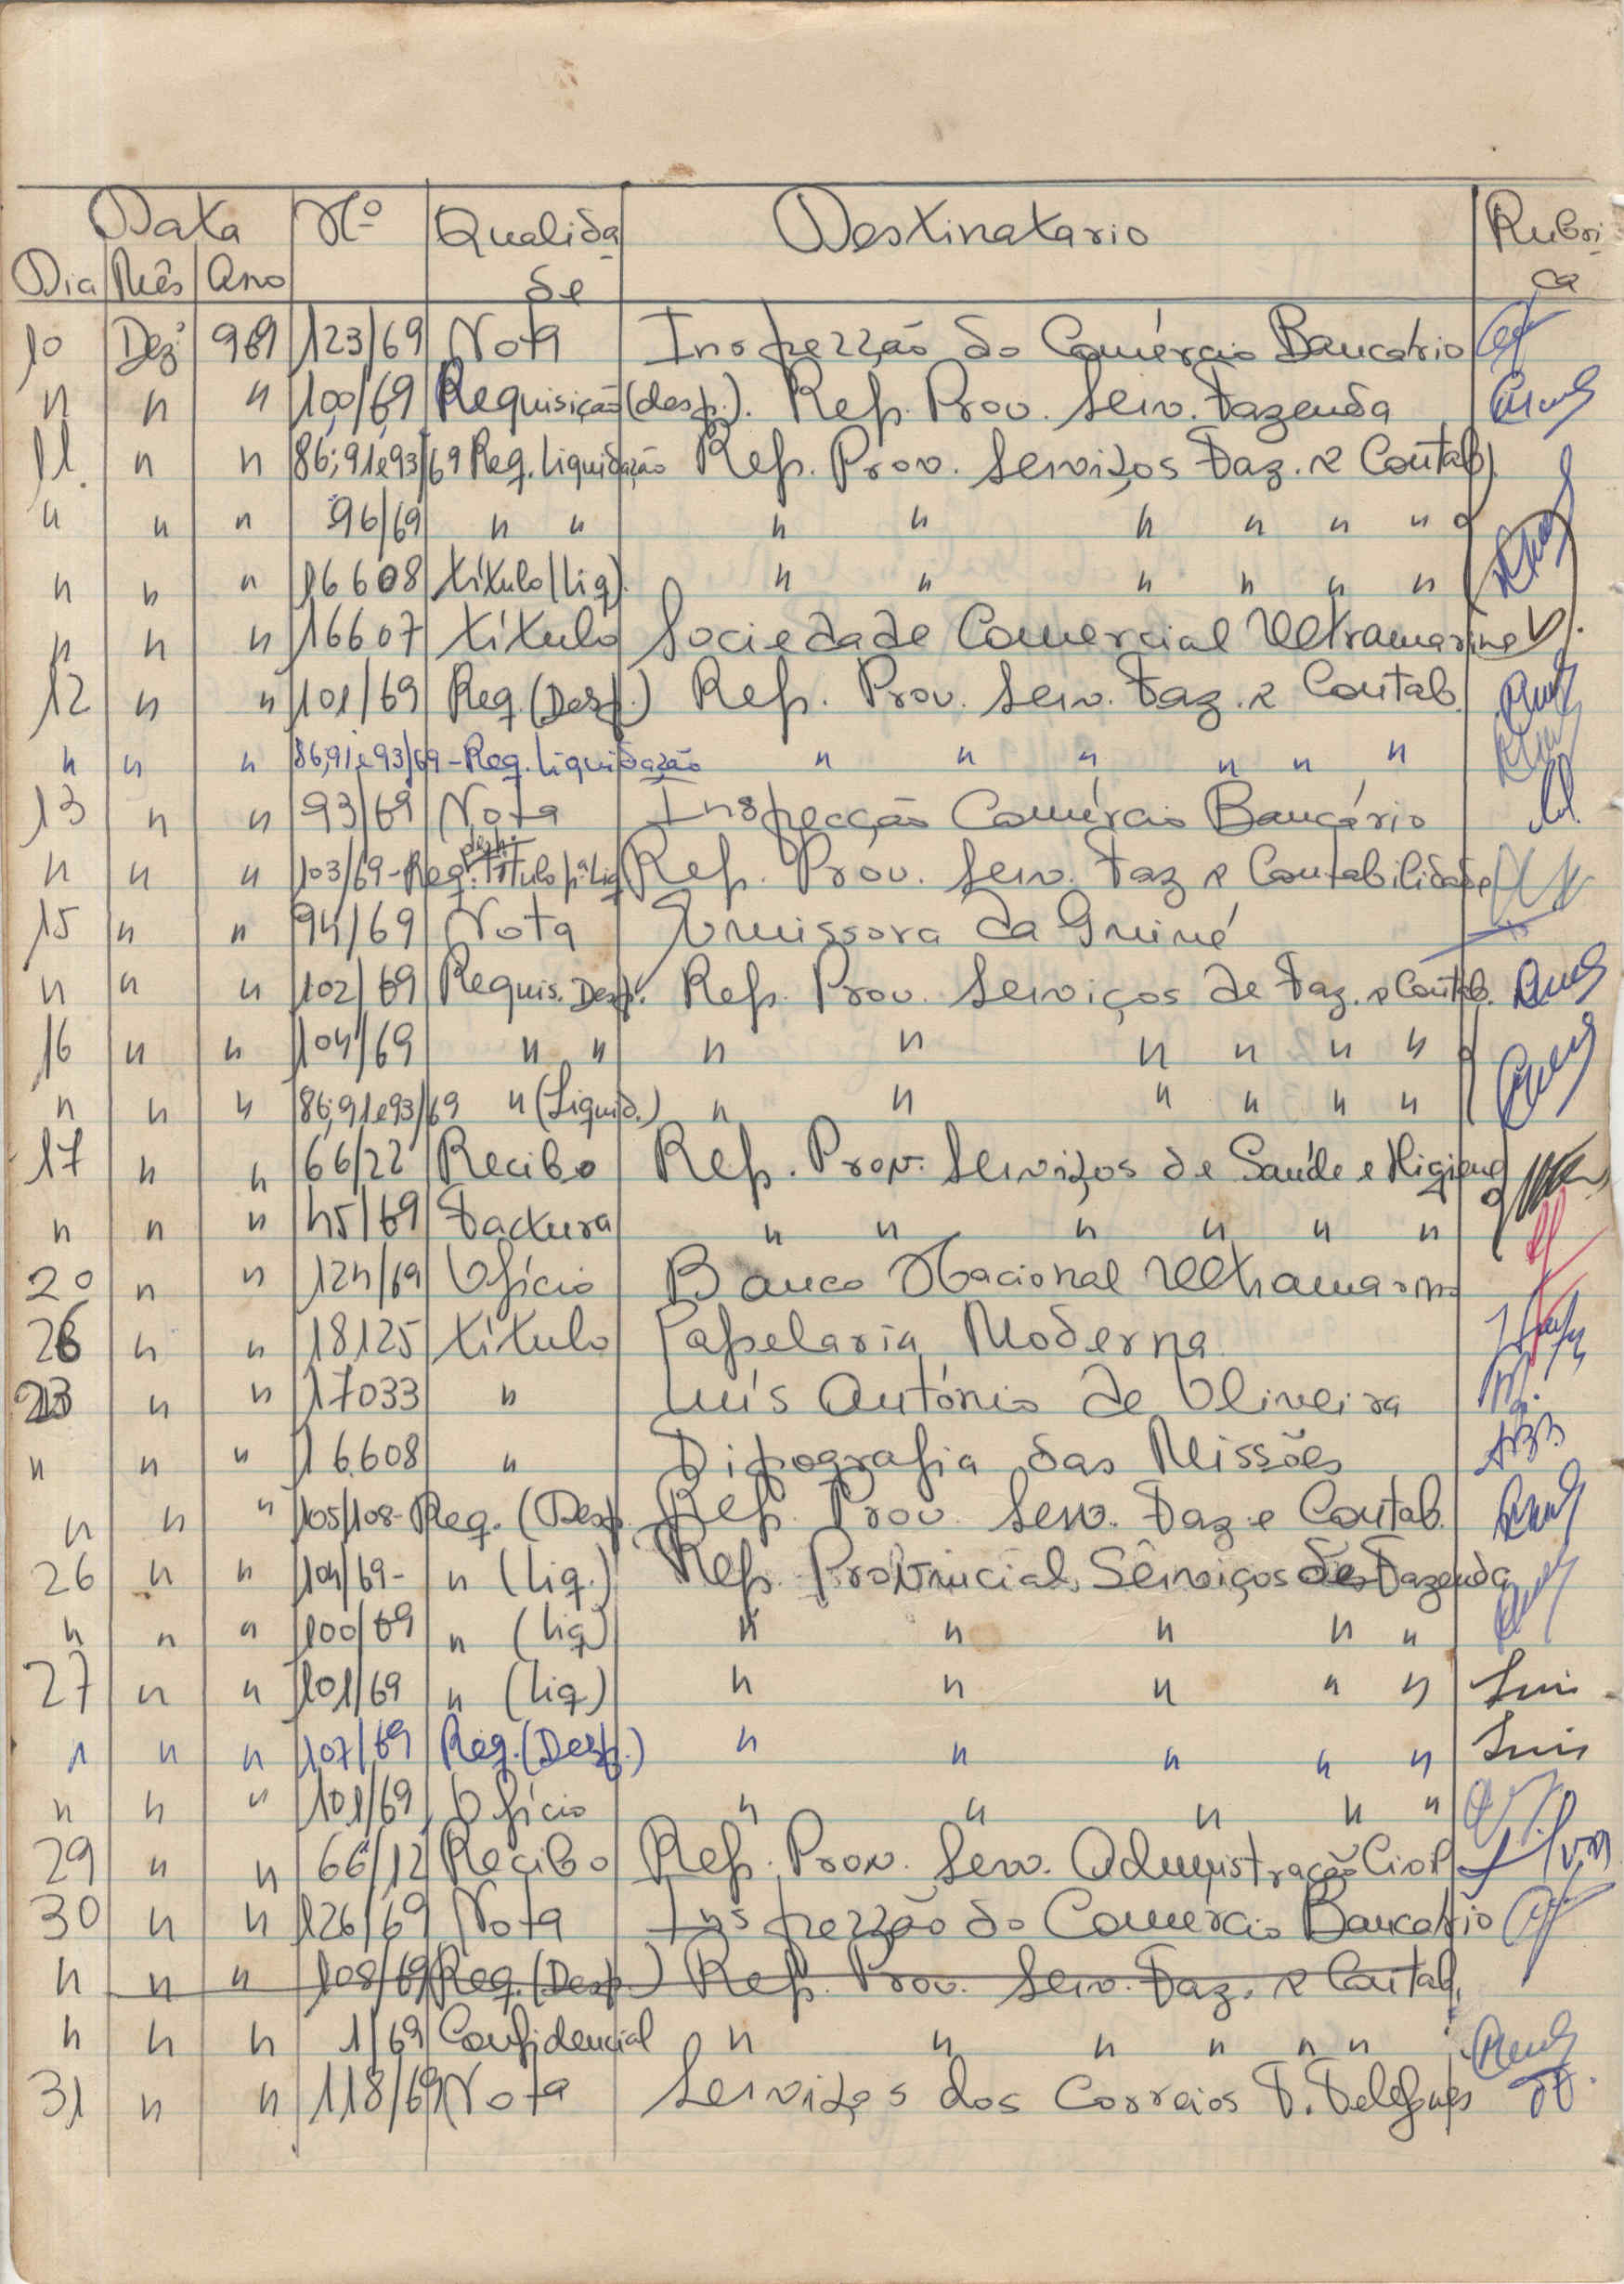 Data Nº Qualida- Destinatario Rubri-
Dia Mês Ano de ca
10 Dez 969 123/69 Nota Inspezzão do Comércio Bancário
" " " 100/69 Requisição (desp.). Rep. Prov. Serv. Fazenda
11. " " 86; 91 e 93/69 Req. Liquidação Rep. Prov. Serviços Faz. e Contab)
" " " 96/69 " " " " " " " "
" " " 16608 título (Liq). " " " " " "
" " " 16607 título Sociedade Comercial Ultramarina
12 " " 101/69 Req. (Desp.) Rep. Prov. Serv. Faz. e Contab.
" " " 86,91 e 93/69 - Req. Liquidação " " " " " "
13 " " 93/69 Nota Inspecção Comércio Bancário
" " " 103/69 - Req. Título p.ª Liq Rep. Prov. Serv. Faz e Contabilidade
15 " " 94/69 Nota Emissora da Guiné
" " " 102/69 Requis. Desp. Rep. Prov. Serviços de Faz. e Contab.
16 " " 104/69 " " " " " " " "
" " " 86; 91 e 93/69 " (Liquid.) " " " " " "
17 " " 66/22 Recibo Rep. Prov. Serviços de Saúde e Higiene
" " " 45/69 Factura " " " " " "
20 " " 124/69 Ofício Banco Nacional Ultramarino
26 " " 18125 título Papelaria Moderna
23 " " 17033 " Luís António de Oliveira
" " " 16608 " Tipografia das Missões
" " " 105/108 - Req. (Desp. Rep. Prov. Serv. Faz e Contab.
26 " " 104/69 - " (Liq.) Rep. Provincial Serviços de Fazenda
" " " 100/69 " (Liq) " " " " "
27 " " 101/69 " (Liq) " " " " " Luis
" " " 107/69 Req. (Desp.) " " " " " Luis
" " " 101/69 Ofício " " " " "
29 " " 66/12 Recibo Rep. Prov. Serv. Administração Civil
30 " " 126/69 Nota Inspezzão do Comércio Bancário
" " " 108/69 Req. (Desp.) Rep. Prov. Serv. Faz. e Contab.
" " " 1/69 Confidencial " " " " " "
31 " " 118/69 Nota Serviços dos Correios T. Telefones